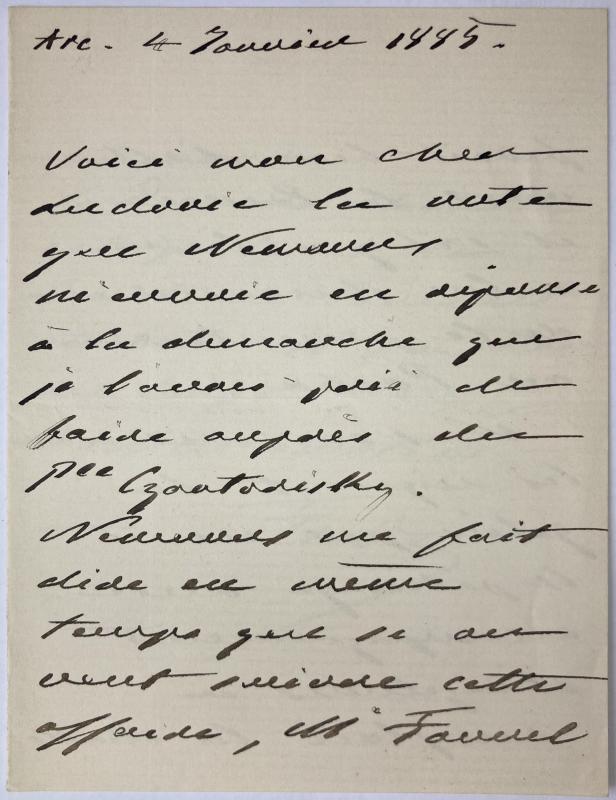 Arc. 4 Janvier 1885.
Voici mon cher
Ludovic la note
que Nemours
m'envoie en réponse
à la demarche que
je l'avais prié de
faire auprès du
Pce Czartorisky.
Nemours me fait
dire en même
temps que si on
veut suivre cette
affaire, Mr